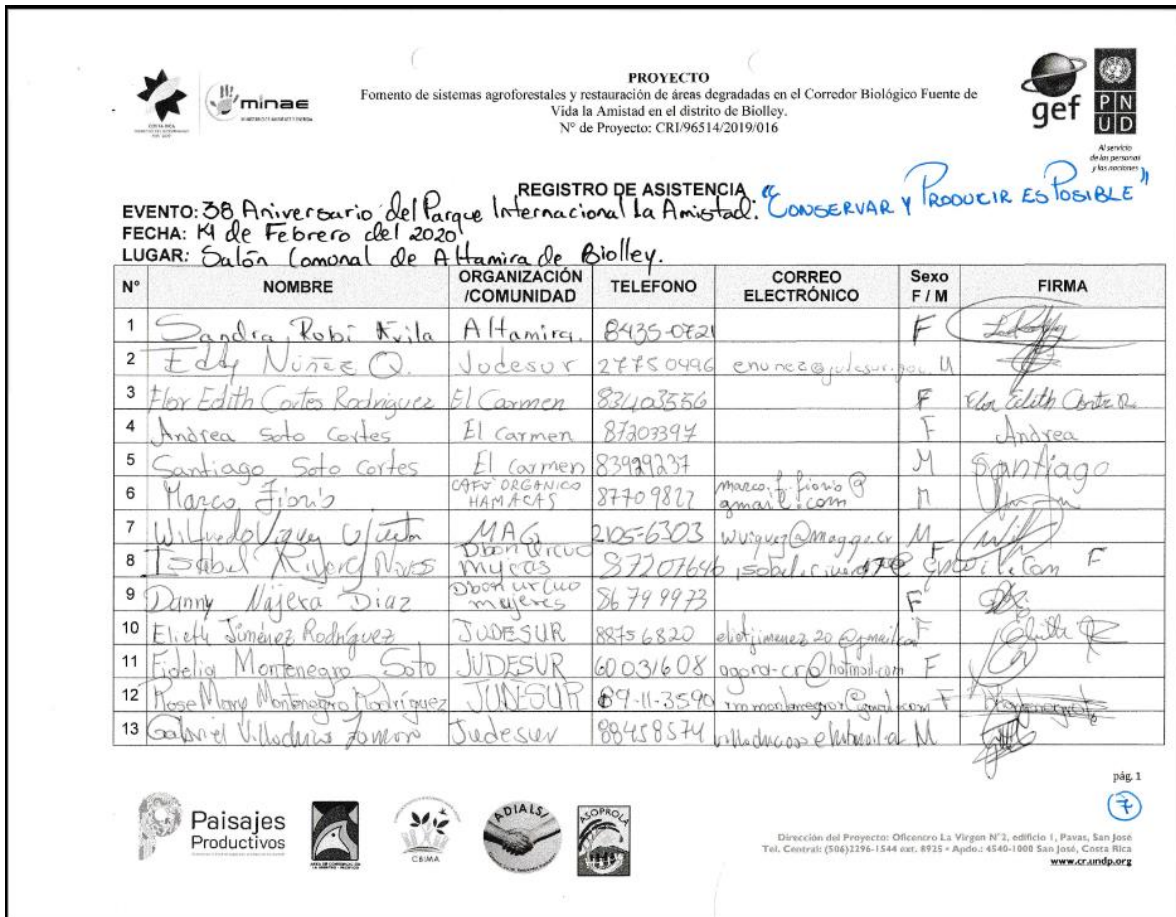 PROYECTO
Fomento de sistemas agroforestales y restauración de áreas degradadas en el Corredor Biológico Fuente de
Vida la Amistad en el distrito de Biolley.
N° de Proyecto: CRI/96514/2019/016
minae
gef
PNUD
Al servicio
de las personas
y las naciones
REGISTRO DE ASISTENCIA
EVENTO: 38 Aniversario del Parque Internacional La Amistad: "CONSERVAR Y PRODUCIR ES POSIBLE"
FECHA: 14 de Febrero del 2020
LUGAR: Salón Comunal de Altamira de Biolley.
N° NOMBRE ORGANIZACIÓN /COMUNIDAD TELEFONO CORREO ELECTRÓNICO Sexo F / M FIRMA
1 Sandra Robi Avila Altamira. 8435-0721 F
2 Eddy Núñez Q. Judesur 27750496
3 Flor Edith Cortes Rodriguez El Carmen 83403556 F Flor Edith
4 Andrea Soto Cortes El Carmen 87203397 F Andrea
5 Santiago Soto Cortes El Carmen 83929237 M Santiago
6 Marco CAFÉ ORGANICO HAMACAS M
7 MAG 2105-6303 M
8 Isabel 87207646 F
9 Danny Nájera Diaz mujeres 86799973 F
10 Elieth Jiménez Rodríguez JUDESUR 88756820 F
11 Fidelia Montenegro Soto JUDESUR 60031608 F
12 Rose Mary Montenegro Rodríguez JUDESUR F
13 Gabriel Judesur 88458574 M
pág. 1
7
Paisajes
Productivos
CBIMA
ADIALS
ASOPROLA
Dirección del Proyecto: Oficentro La Virgen N°2, edificio 1, Pavas, San José
Tel. Central: (506)2296-1544 ext. 8925 • Apdo.: 4540-1000 San José, Costa Rica
www.cr.undp.org